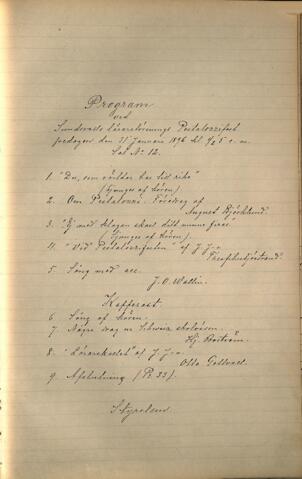 Program
vid
Sundsvalls lärareförenings Pestalozzifest
fredagen den 31 Januari 1896 kl. 1/2 5 e. m.
Sal No 12.
1. "Du, som världar har ditt rike"
(Sjunges af kören)
2. Om Pestalozzi. Föredrag af
August Björklund.
3. "Ej med klagan skall ditt minne firas"
(Sjunges af kören).
4. "Vid Pestalozzifesten" af J. J-n
5. Sång med acc.
J. O. Wallin.
Kafferast.
6. Sång af kören.
7. Några drag ur Schweiz skolväsen.
Hj. Boström.
8. "Lärarekallet" af J. J-n
Otto Gottvall.
9. Afslutning (Ps 33)
Styrelsen.